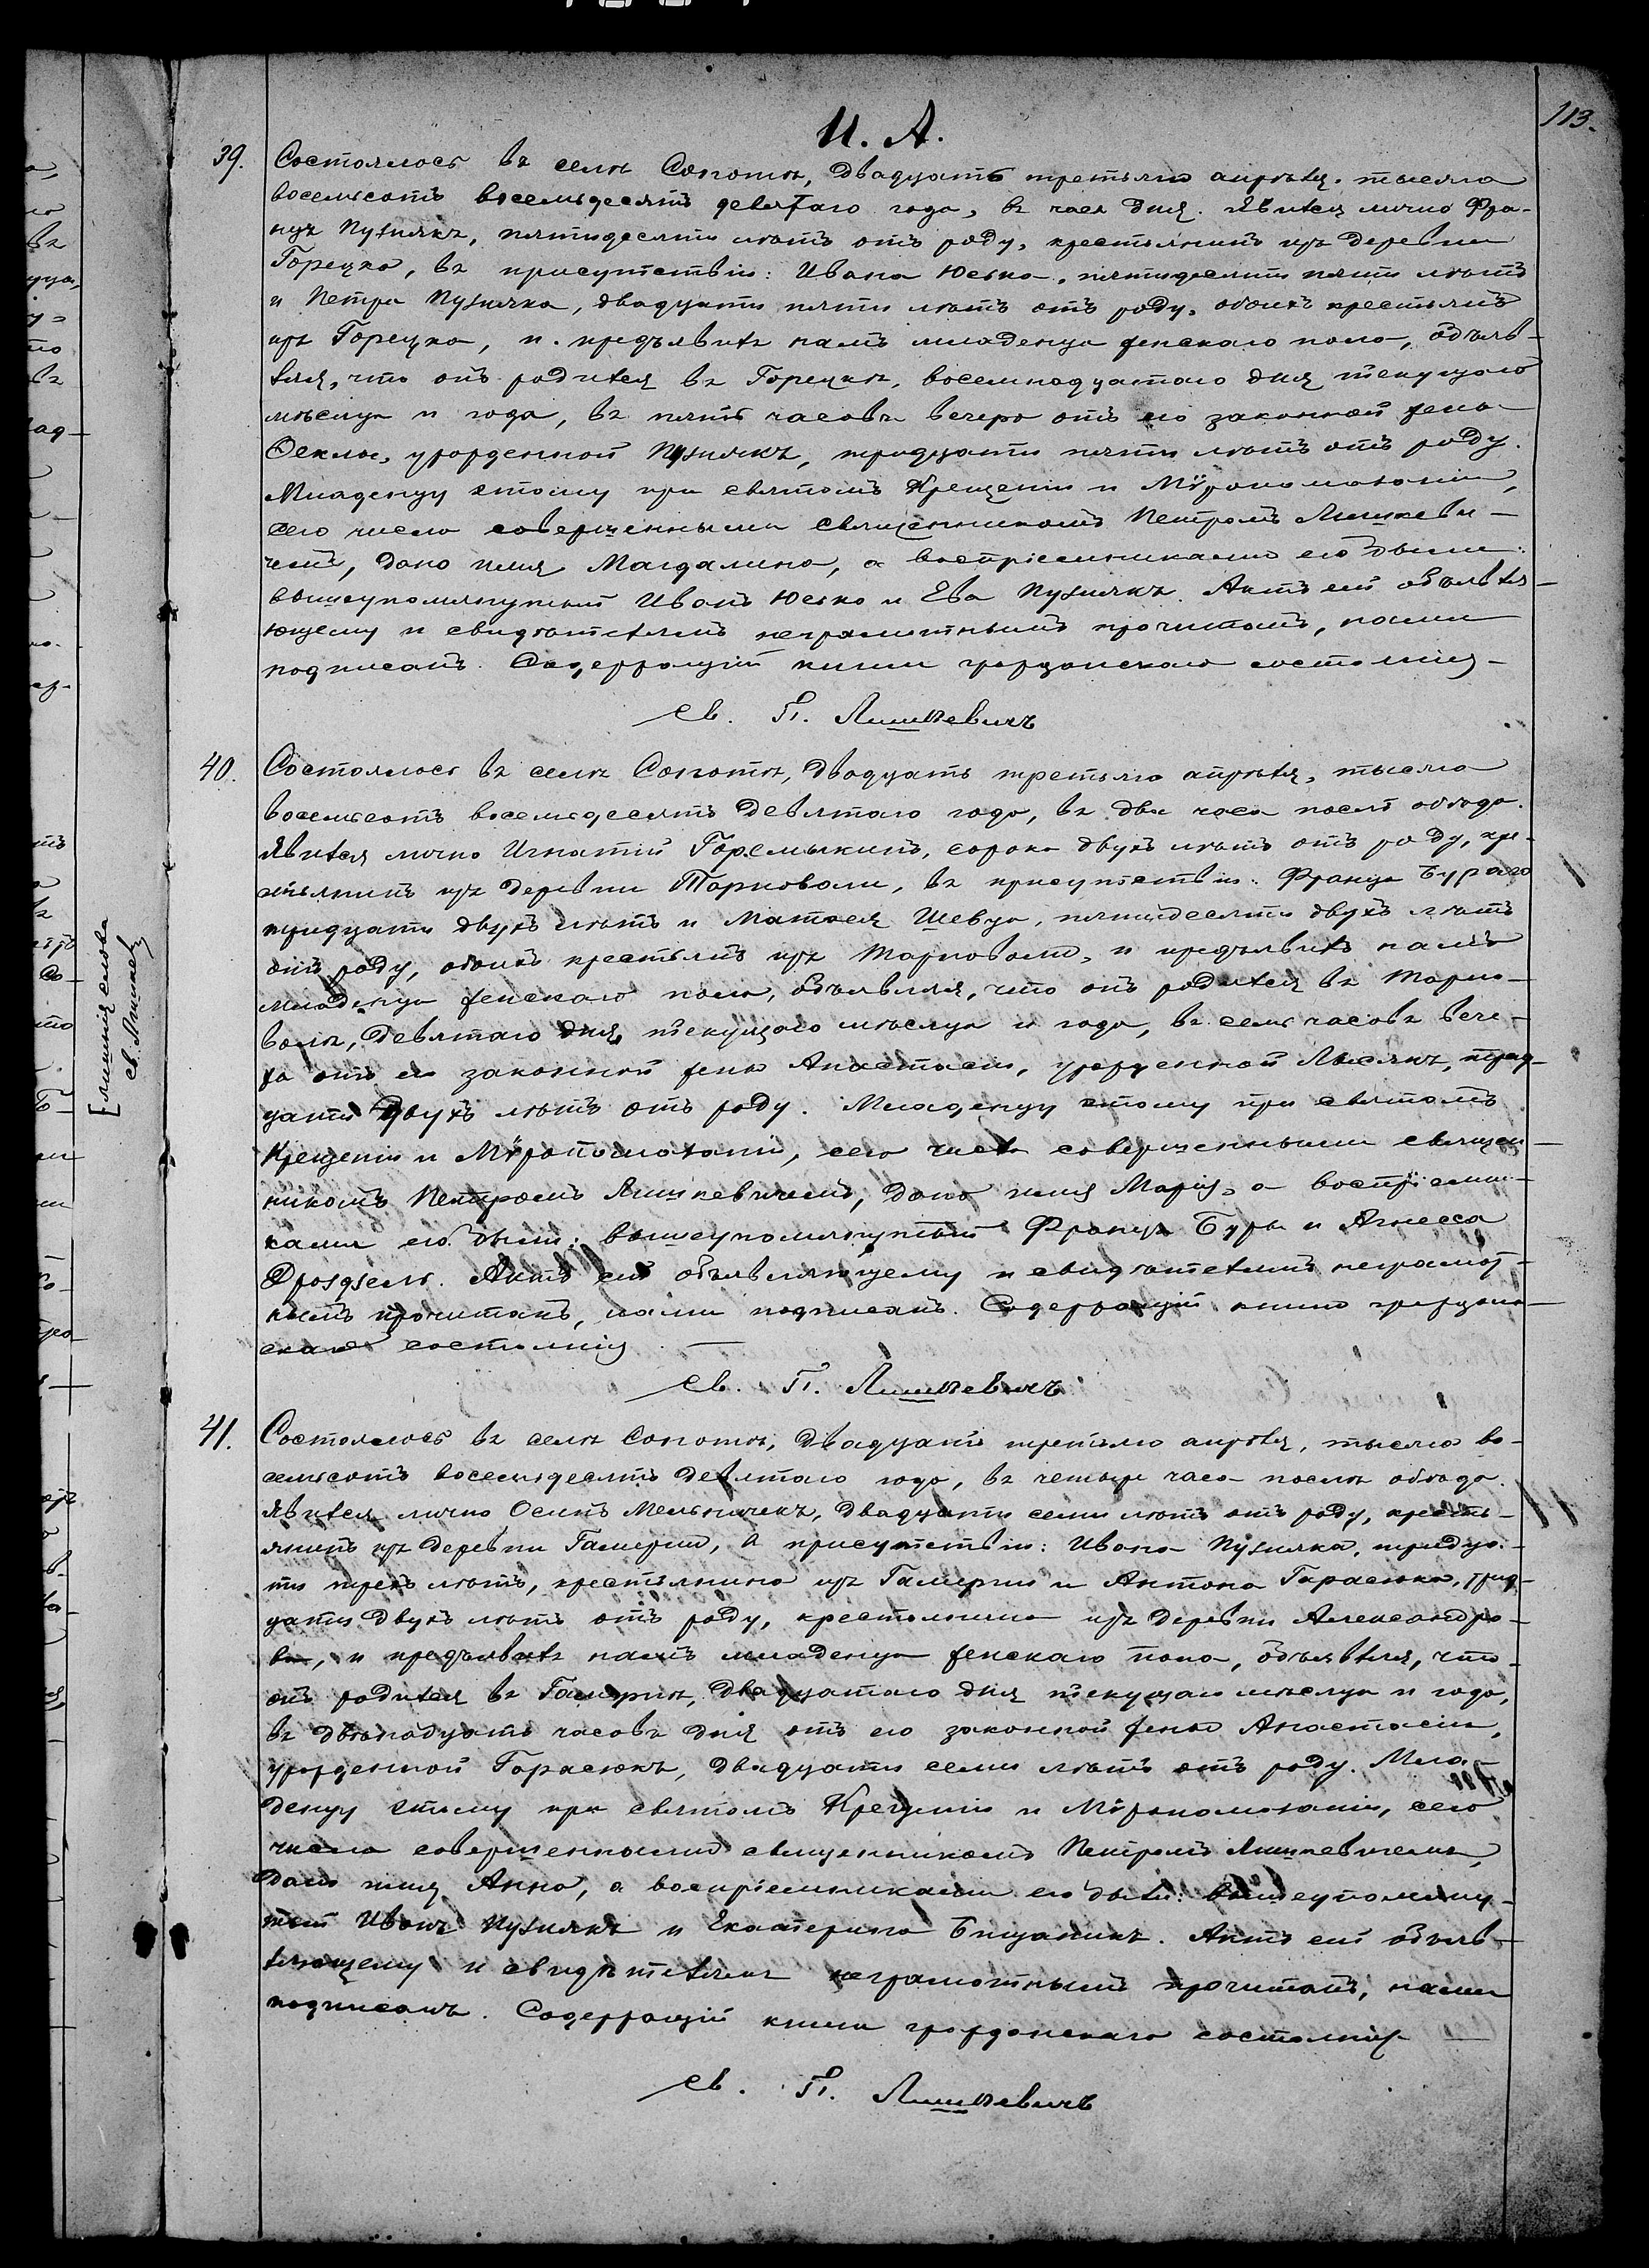 И. А.
113.
39. Состоялось въ селѣ Сопотѣ, двадцать третьяго апрѣля, тысяча
восемьсотъ восемьдесятъ девятаго года, въ часъ дня. Явился лично Фра-
нцъ Пузнякъ, пятидесяти лѣтъ отъ роду, крестьянинъ изъ деревни
Горецко, въ присутствіи: Ивана Юсько, пятидесяти пяти лѣтъ
и Петра Пузняка, двадцати пяти лѣтъ отъ роду, обоихъ крестьянъ
изъ Горецко, и предъявилъ намъ младенца женскаго пола, объяв-
ляя, что онъ родился въ Горецкѣ, восемнадцатаго дня текущаго
мѣсяца и года, въ пять часовъ вечера отъ его законной жены
Феклы, урожденной Пузнякъ, тридцати пяти лѣтъ отъ роду.
Младенцу этому при святомъ Крещеніи и Мѵропомазаніи,
сего числа совершенными священникомъ Петромъ Лишкеви-
чемъ, дано имя Магдалина, а воспріемниками его были:
вышеупомянутый Иванъ Юсько и Ева Пузнякъ. Актъ сей объявля-
ющему и свидѣтелямъ неграмотнымъ прочитанъ, нами
подписанъ. Содержащій книги гражданскаго состоянія
Св. П. Лишкевичъ
40. Состоялось въ селѣ Сопотѣ, двадцать третьяго апрѣля, тысяча
восемьсотъ восемьдесятъ девятаго года, въ два часа послѣ обѣда.
Явился лично Игнатій Горемыкинъ, сорока двухъ лѣтъ отъ роду, кре-
стьянинъ изъ деревни Тарноволи, въ присутствіи: Франца Бураго
тридцати двухъ лѣтъ и Матвея Шевца, пятидесяти двухъ лѣтъ
отъ роду, обоихъ крестьянъ изъ Тарноволи, и предъявилъ намъ
младенца женскаго пола, объявляя, что онъ родился въ Тарно-
волѣ, девятаго дня текущаго мѣсяца и года, въ семь часовъ вече-
ра отъ его законной жены Анастасіи, урожденной Лысякъ, трид-
цати двухъ лѣтъ отъ роду. Младенцу этому при святомъ
Крещеніи и Мѵропомазаніи, сего числа совершенными священ-
никомъ Петромъ Лишкевичемъ, дано имя Марія, а воспріемни-
ками его были: вышеупомянутый Францъ Буры и Агнесса
Дроздзель. Актъ сей объявляющему и свидѣтелямъ неграмот-
нымъ прочитанъ, нами подписанъ. Содержащій книги граждан-
скаго состоянія
Св. П. Лишкевичъ
41. Состоялось въ селѣ Сопотѣ, двадцать третьяго апрѣля, тысяча во-
семьсотъ восемьдесятъ девятаго года, въ четыре часа послѣ обѣда.
Явился лично Осипъ Мельничекъ, двадцати семи лѣтъ отъ роду, кресть-
янинъ изъ деревни Гамерни, въ присутствіи: Ивана Пузняка, тридца-
ти трехъ лѣтъ, крестьянина изъ Гамерни и Антона Гарасюка, трид-
цати двухъ лѣтъ отъ роду, крестьянина изъ деревни Александро-
ва, и предъявилъ намъ младенца женскаго пола, объявляя, что
онъ родился въ Гамернѣ, двадцатаго дня текущаго мѣсяца и года,
въ двѣнадцать часовъ дня отъ его законной жены Анастасіи,
урожденной Гарасюкъ, двадцати семи лѣтъ отъ роду. Мла-
денцу этому при святомъ Крещеніи и Мѵропомазаніи, сего
числа совершенными священникомъ Петромъ Лишкевичемъ,
дано имя Анна, а воспріемниками его были: вышеупомяну-
тый Иванъ Пузнякъ и Екатерина Бицаникъ. Актъ сей объяв-
ляющему и свидѣтелямъ неграмотнымъ прочитанъ, нами
подписанъ. Содержащій книги гражданскаго состоянія
Св. П. Лишкевичъ
[лишнія слова
св. Лишкев